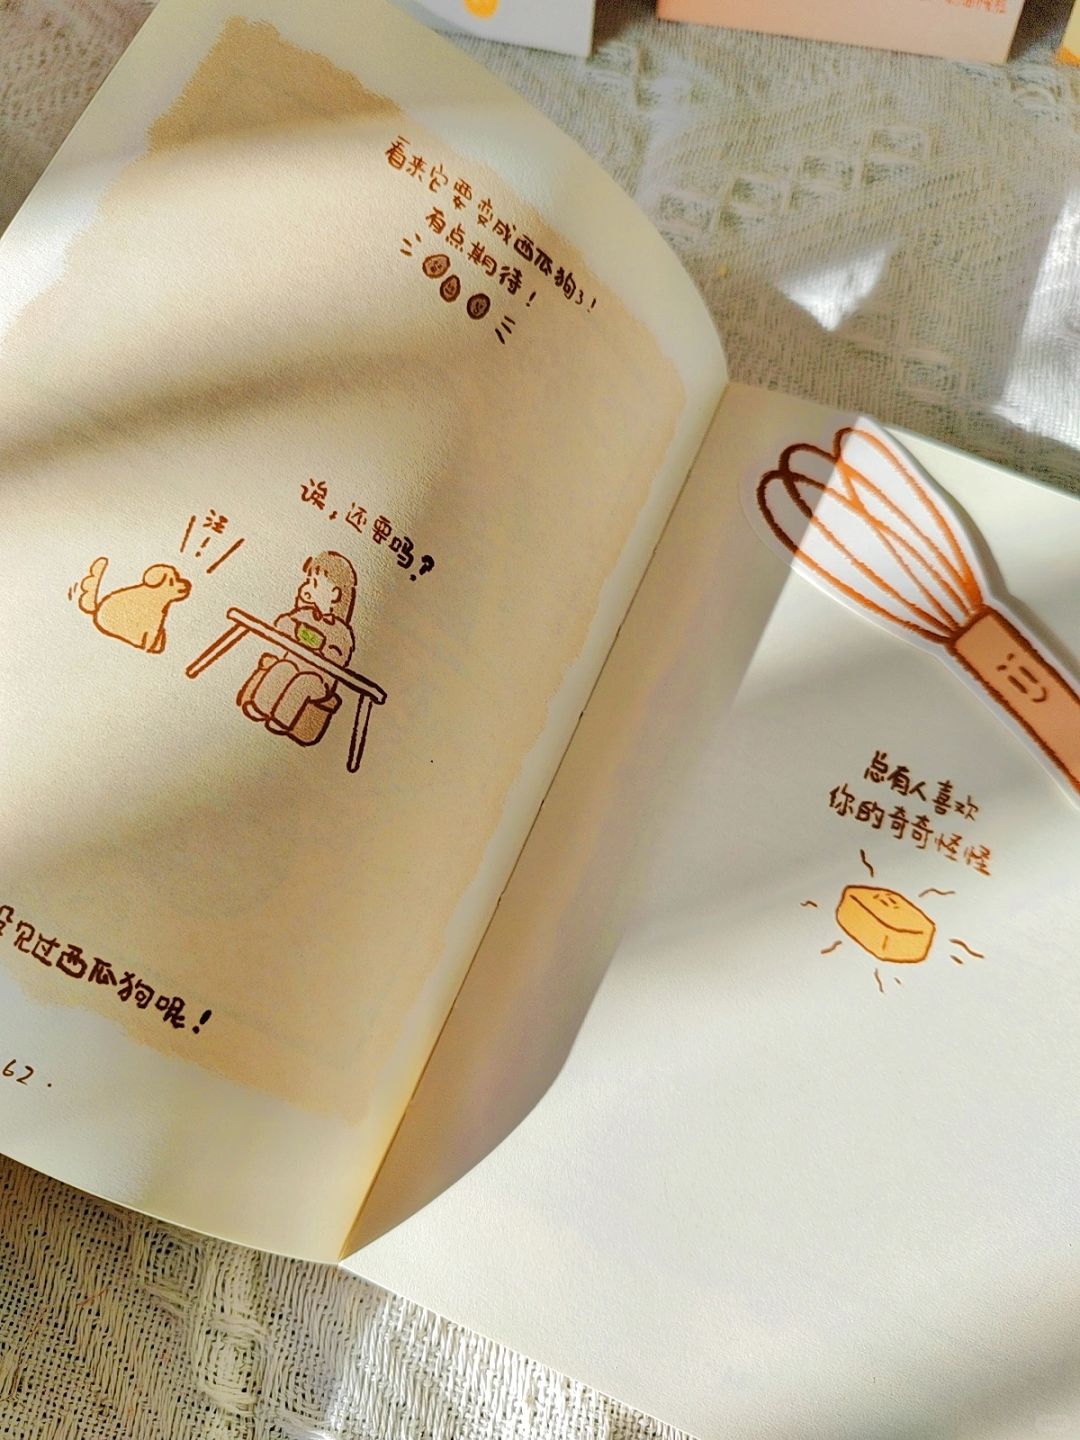 看来它要变成西瓜狗了!
有点期待!
诶,还要吗?
汪!
没见过西瓜狗呢!
62.
总有人喜欢
你的奇奇怪怪